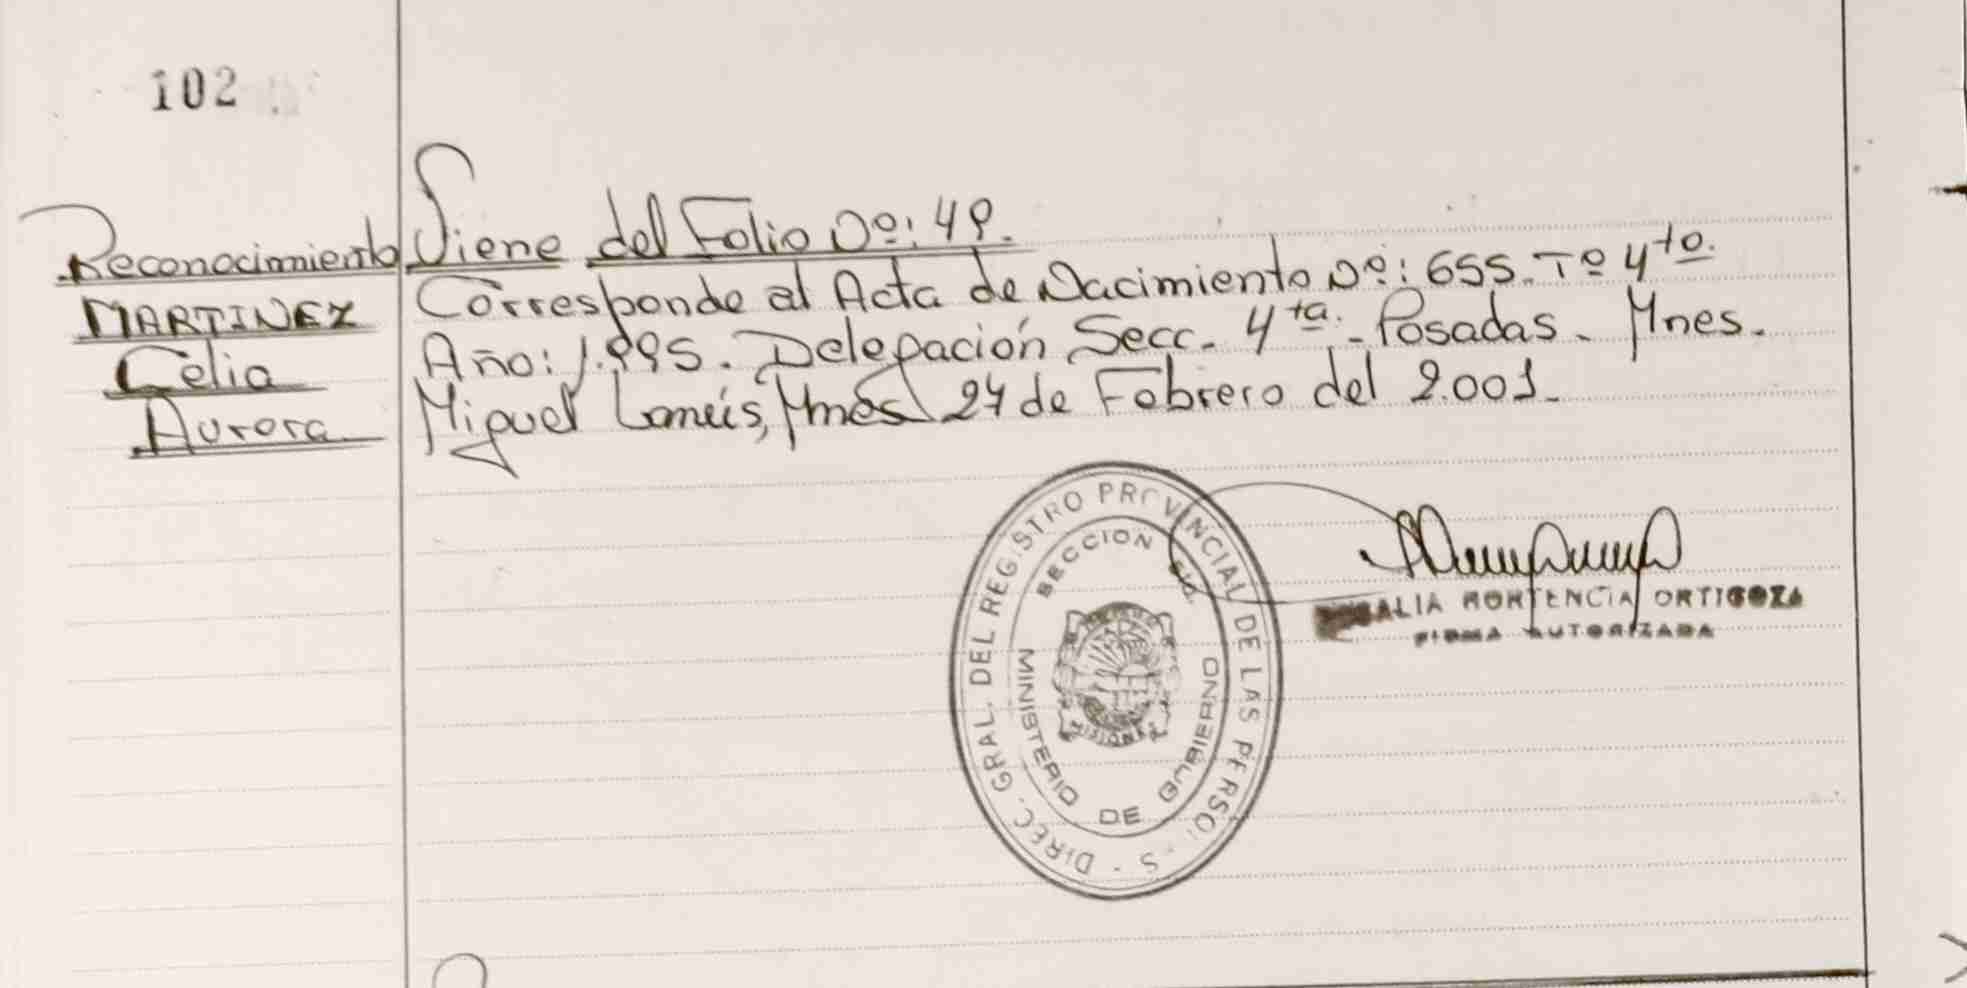 102
Reconocimiento
MARTINEZ
Celia
Aurora
Viene del Folio Nº: 49.
Corresponde al Acta de Nacimiento Nº: 655. Tº 4to.
Año: 1.995. Delegación Secc. 4ta. - Posadas. Mnes.
Miguel Lanús, Mnes 24 de Febrero del 2.001.
DIREC. GRAL. DEL REGISTRO PROVINCIAL DE LAS PERSO S -
SECCION
MINISTERIO DE GOBIERNO
MISIONES
HORTENCIA ORTIGOZA
FIRMA AUTORIZADA